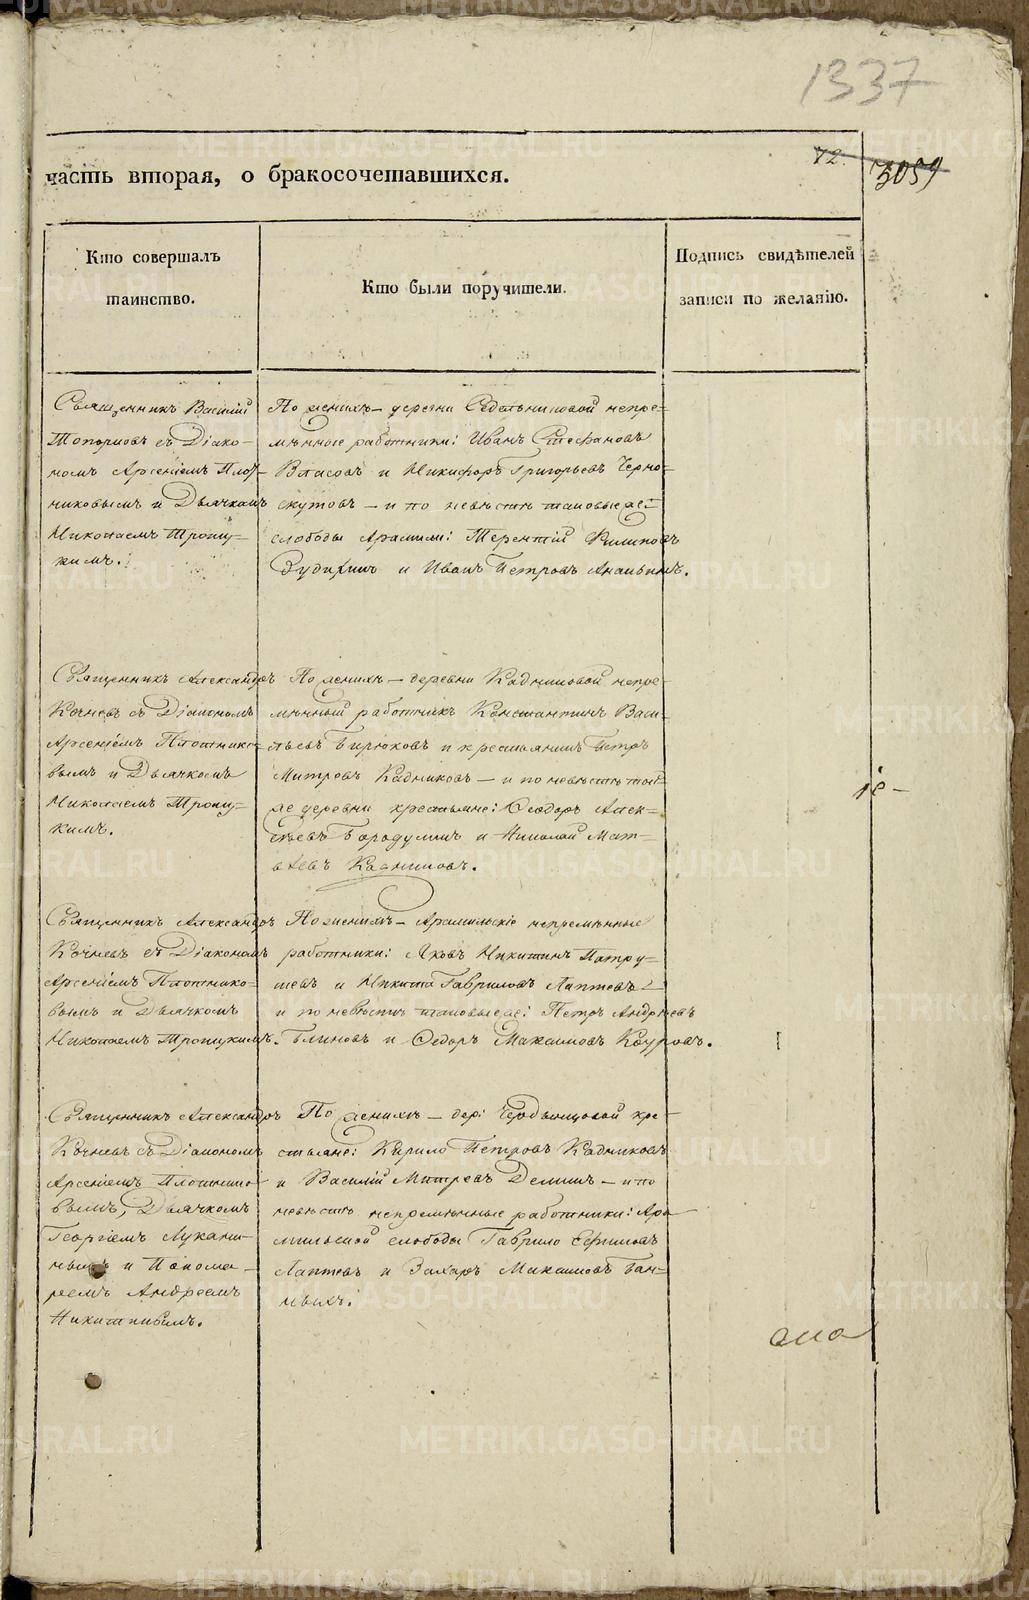 1337
72.
3059
часть вторая, о бракосочетавшихся.
Кто совершалъ
таинство.
Кто были поручители.
Подпись свидѣтелей
записи по желанію.
Священникъ Василій
Топорковъ съ Діако-
номъ Арсеніемъ Плот-
никовымъ и Дьячкомъ
Николаемъ Тропу-
кимъ.
По женихѣ — деревни Седельниковой непре-
мѣнные работники: Иванъ Стефановъ
Власовъ и Никифоръ Григорьевъ Черно-
скутовъ — и по невѣстѣ таковые же
слободы Арамили: Терентій Филиповъ
Зудихинъ и Иванъ Петровъ Ананьинъ.
Священникъ Александръ
Кочневъ съ Діакономъ
Арсеніемъ Плотнико-
вымъ и Дьячкомъ
Николаемъ Тропу-
кимъ.
По женихѣ — деревни Кадниковой непре-
мѣнный работникъ Константинъ Васи-
льевъ Бирюковъ и крестьянинъ Петръ
Митревъ Кадниковъ — и по невѣстѣ той
же деревни крестьяне: Ѳеодоръ Алек-
сѣевъ Бородулинъ и Николай Мат-
вѣевъ Кадниковъ.
Священникъ Александръ
Кочневъ съ Діакономъ
Арсеніемъ Плотнико-
вымъ и Дьячкомъ
Николаемъ Тропукимъ.
По женихѣ — Арамильскіе непремѣнные
работники: Яковъ Никитинъ Патру-
шевъ и Никита Гавриловъ Лаптевъ —
и по невѣстѣ таковые же: Петръ Андреевъ
Блиновъ и Ѳедоръ Максимовъ Коуровъ.
Священникъ Александръ
Кочневъ съ Діакономъ
Арсеніемъ Плотнико-
вымъ, Дьячкомъ
Георгіемъ Лукани-
нымъ и Понома-
ремъ Андреемъ
Никитинымъ.
По женихѣ — дер: Чердынцовой кре-
стьяне: Кирило Петровъ Кадниковъ
и Василій Митревъ Деминъ — и по
невѣстѣ непремѣнные работники: Ара-
мильской слободы Гаврило Ефимовъ
Лаптевъ и Захаръ Максимовъ Бан-
ныхъ.
METRIKI.GASO-URAL.RU